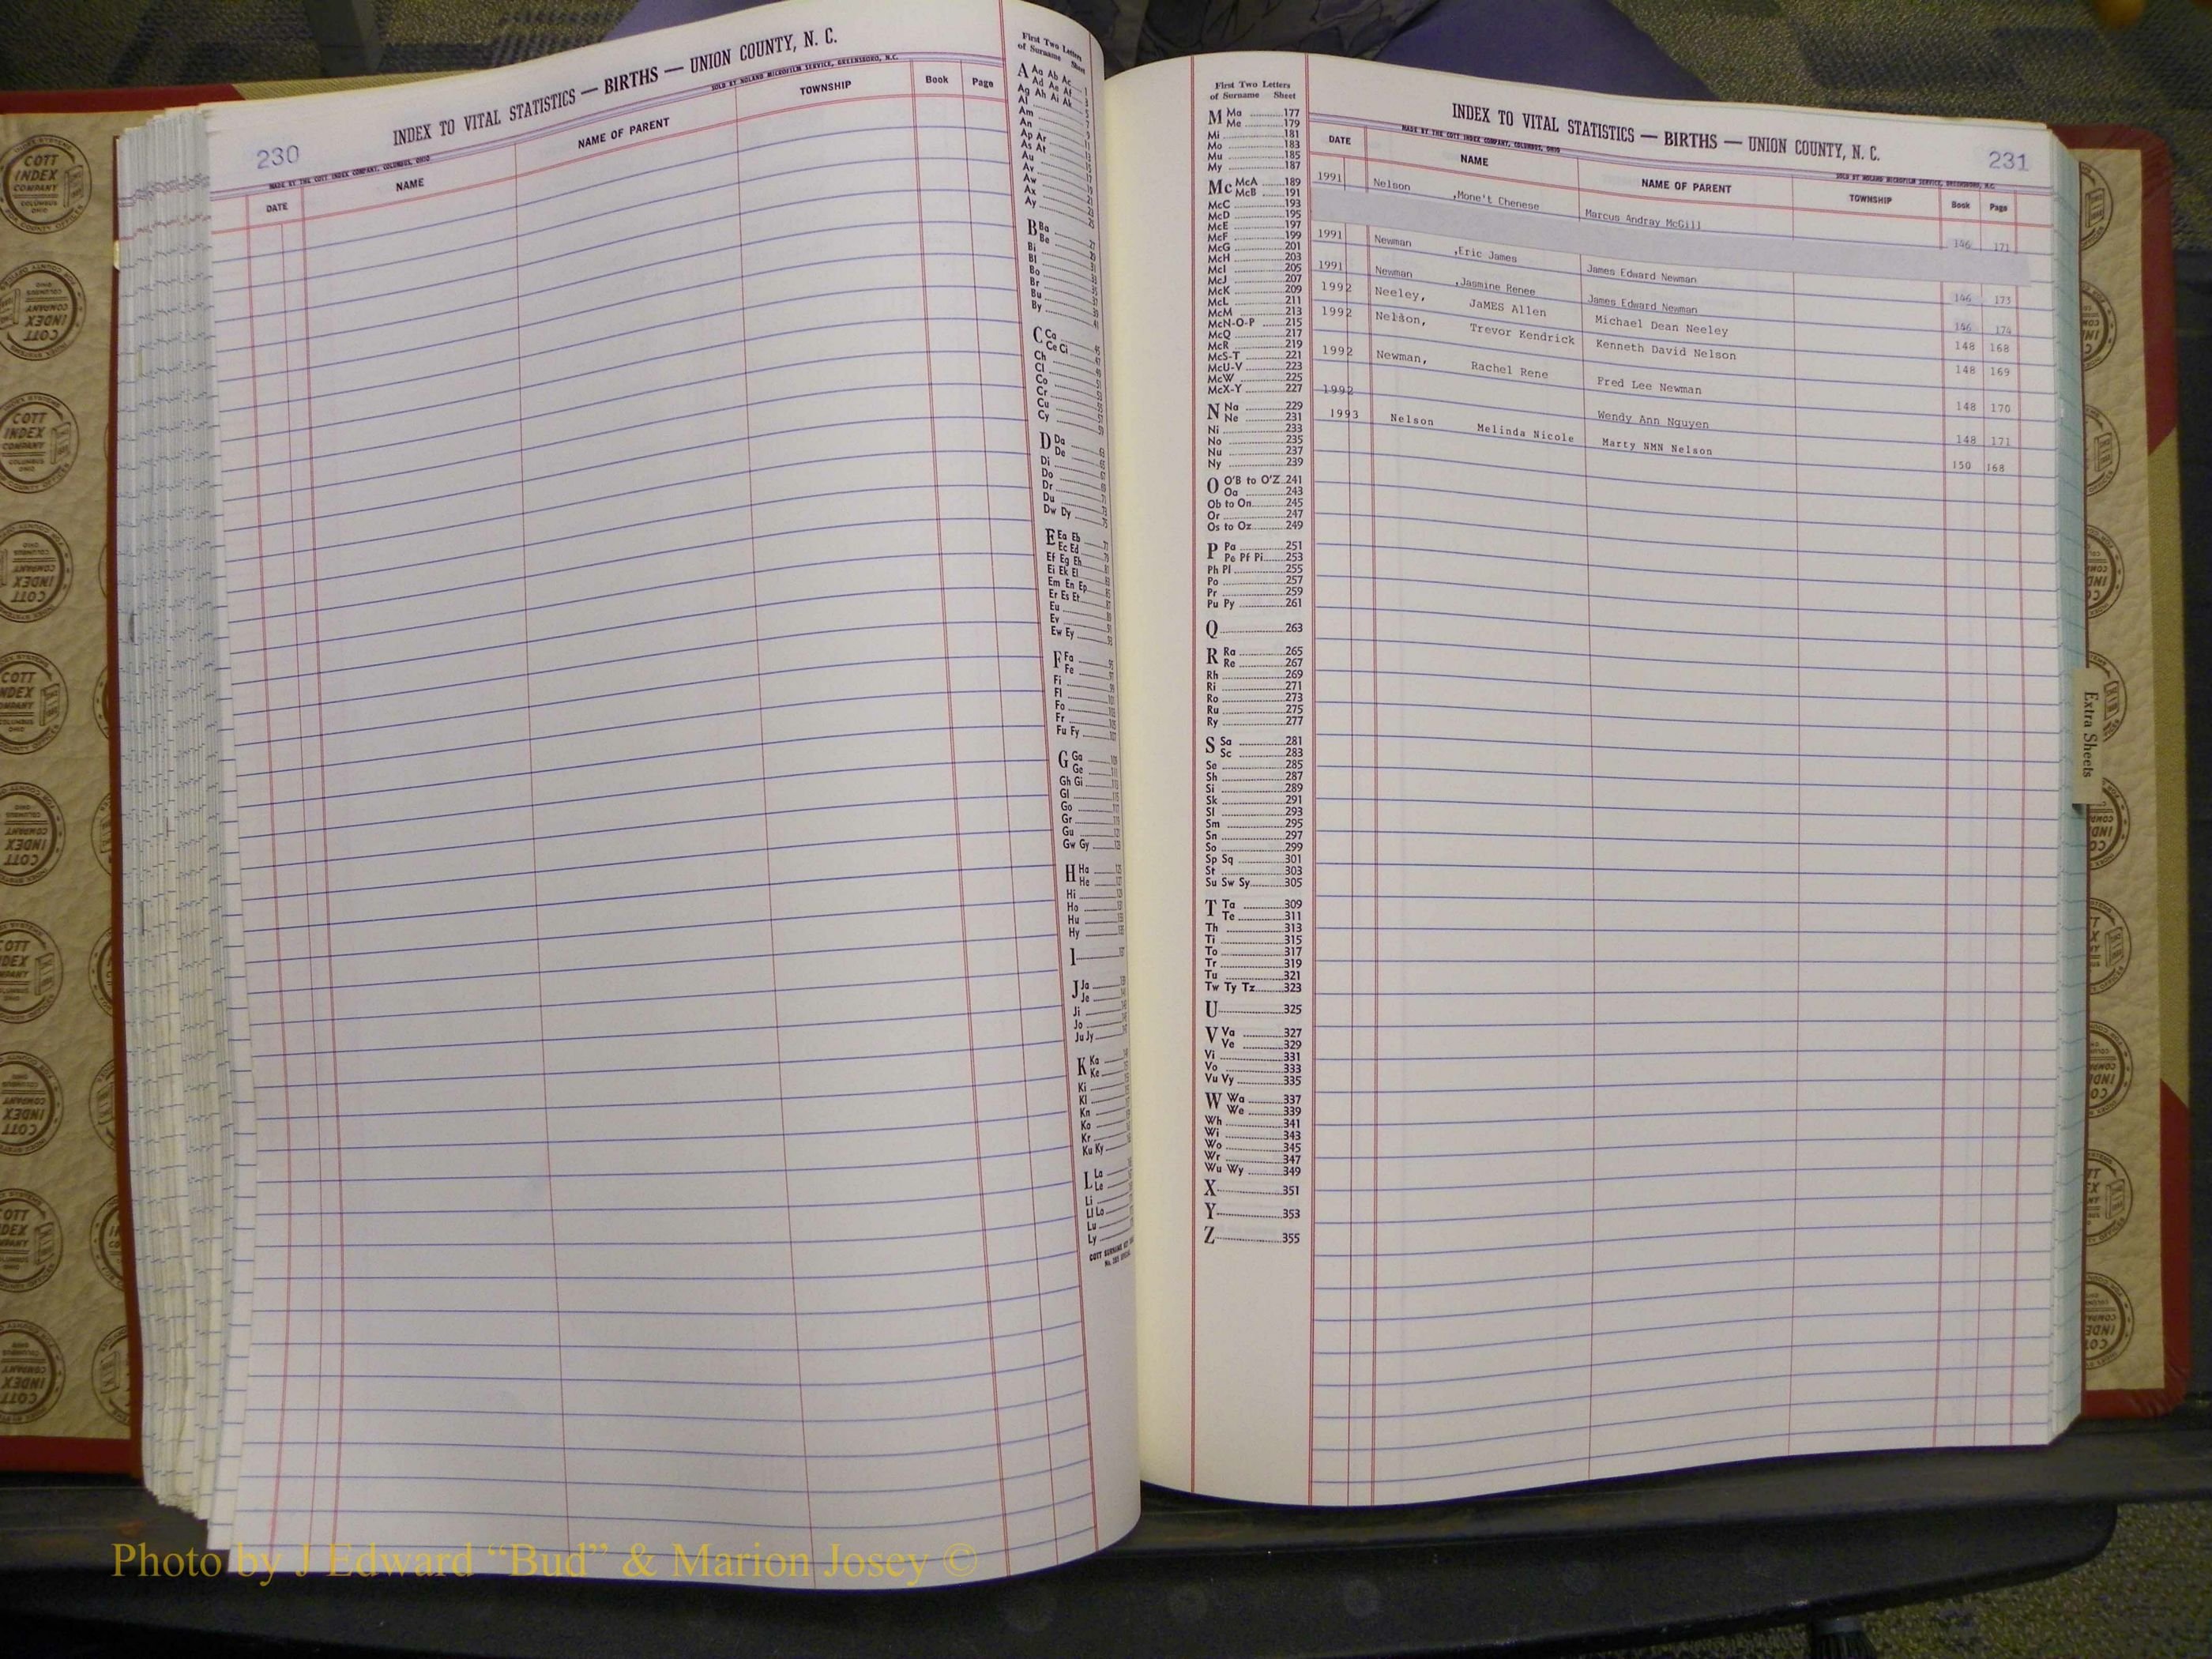 230
INDEX TO VITAL STATISTICS — BIRTHS — UNION COUNTY, N. C.
MADE BY THE COTT INDEX COMPANY, COLUMBUS, OHIO
SOLD BY NOLAND MICROFILM SERVICE, GREENSBORO, N.C.
DATE NAME NAME OF PARENT TOWNSHIP Book Page
First Two Letters
of Surname Sheet
A Aa Ab Ac
Ad Ae Af
Ag Ah Ai Ak
Al
Am
An
Ap Ar
As At
Au
Av
Aw
Ax
Ay
B Ba
Be
Bi
Bl
Bo
Br
Bu
By
C Ca
Ce Ci
Ch
Cl
Co
Cr
Cu
Cy
D Da
De
Di
Do
Dr
Du
Dw Dy
E Ea Eb
Ec Ed
Ef Eg Eh
Ei Ek El
Em En Ep
Er Es Et
Eu
Ev
Ew Ey
F Fa
Fe
Fi
Fl
Fo
Fr
Fu Fy
G Ga
Ge
Gh Gi
Gl
Go
Gr
Gu
Gw Gy
H Ha
He
Hi
Ho
Hu
Hy
I
J Ja
Je
Ji
Jo
Ju Jy
K Ka
Ke
Ki
Kl
Kn
Ko
Kr
Ku Ky
L La
Le
Li
Ll Lo
Lu
Ly
First Two Letters
of Surname Sheet
M Ma 177
Me 179
Mi 181
Mo 183
Mu 185
My 187
Mc McA 189
McB 191
McC 193
McD 195
McE 197
McF 199
McG 201
McH 203
McI 205
McJ 207
McK 209
McL 211
McM 213
McN-O-P 215
McQ 217
McR 219
McS-T 221
McU-V 223
McW 225
McX-Y 227
N Na 229
Ne 231
Ni 233
No 235
Nu 237
Ny 239
O O'B to O'Z 241
Oa 243
Ob to On 245
Or 247
Os to Oz 249
P Pa 251
Pe Pf Pi 253
Ph Pl 255
Po 257
Pr 259
Pu Py 261
Q 263
R Ra 265
Re 267
Rh 269
Ri 271
Ro 273
Ru 275
Ry 277
S Sa 281
Sc 283
Se 285
Sh 287
Si 289
Sk 291
Sl 293
Sm 295
Sn 297
So 299
Sp Sq 301
St 303
Su Sw Sy 305
T Ta 309
Te 311
Th 313
Ti 315
To 317
Tr 319
Tu 321
Tw Ty Tz 323
U 325
V Va 327
Ve 329
Vi 331
Vo 333
Vu Vy 335
W Wa 337
We 339
Wh 341
Wi 343
Wo 345
Wr 347
Wu Wy 349
X 351
Y 353
Z 355
INDEX TO VITAL STATISTICS — BIRTHS — UNION COUNTY, N. C.
231
MADE BY THE COTT INDEX COMPANY, COLUMBUS, OHIO
SOLD BY NOLAND MICROFILM SERVICE, GREENSBORO, N.C.
DATE NAME NAME OF PARENT TOWNSHIP Book Page
1991 Nelson ,Mone't Chenese Marcus Andray McGill 146 171
1991 Newman ,Eric James James Edward Newman 146 173
1991 Newman ,Jasmine Renee James Edward Newman 146 174
1992 Neeley, JaMES Allen Michael Dean Neeley 148 168
1992 Nelson, Trevor Kendrick Kenneth David Nelson 148 169
1992 Newman, Rachel Rene Fred Lee Newman 148 170
1992 Wendy Ann Nguyen 148 171
1993 Nelson Melinda Nicole Marty NMN Nelson 150 168
Extra Sheets
COTT
INDEX
COMPANY
COLUMBUS
OHIO
Photo by J Edward “Bud” & Marion Josey ©